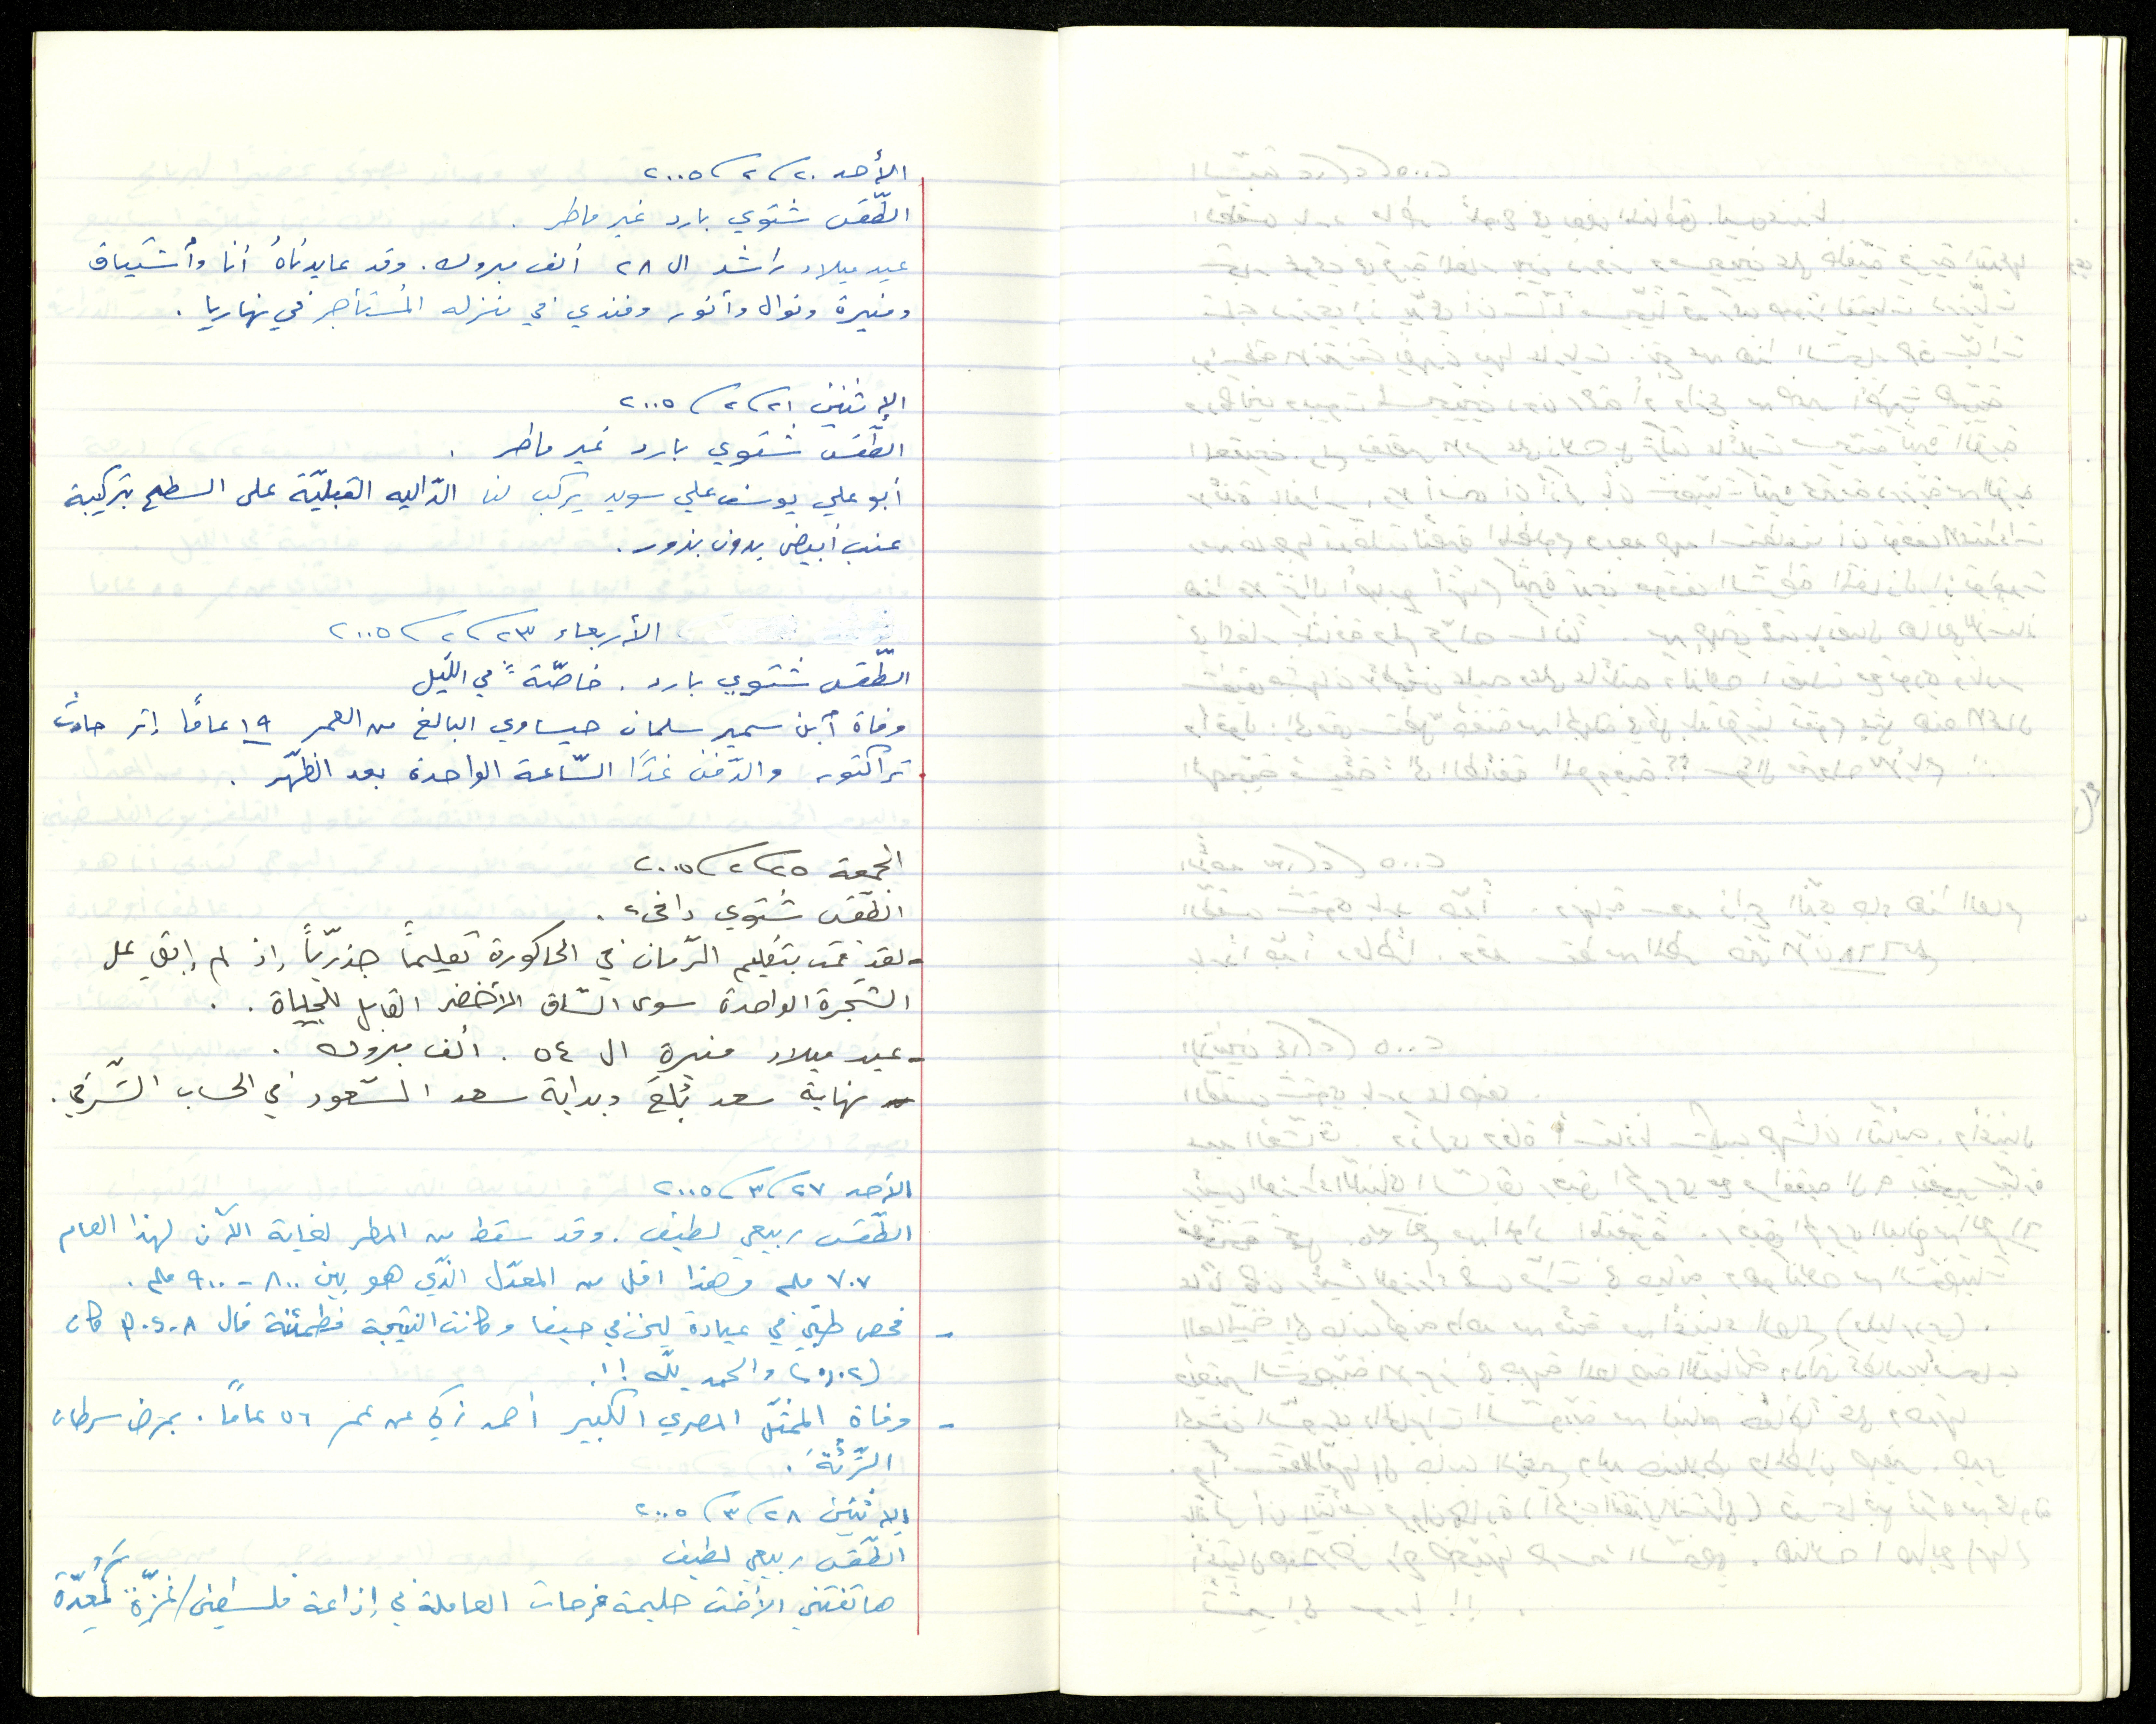 الأحد ٢٠/٢/٢٠٠٥
الطّقس شتوي بارد غير ماطر .
عيد ميلاد راشد ال ٢٨ ألف مبروك. وقد عايدناهُ أنا وأشتياق
ومنيرة ونوال وأنور وفندي في منزله المُستأجر في نهاريا .
الإثنين ٢١/٢/٢٠٠٥
الطّقس شتوي بارد غير ماطر .
أبو علي يوسف علي سويد يركب لنا الدّاليه القبليّة على السطح بتركيبة
عنب أبيض بدون بذور .
الأربعاء ٢٣/٢/٢٠٠٥
الطّقس شتوي بارد . خاصّةً في الليل
وفاة أبن سمير سلمان حيساوي البالغ من العمر ١٩ عامًا إثر حادث
تراكتور والدّفن غدًا السّاعة الواحدة بعد الظهّر .
الجمعة ٢٥/٢/٢٠٠٥
الطّقس شتوي دافىء .
- لقد قمت بتقليم الرّمان في الحاكورة تقليماً جذريّاً إذ لم إبقي على
الشّجرة الواحدة سوى السّاق الأخضر القابل للحياة .
- عيد ميلاد منيرة ال ٥٤ . ألف مبروك .
- نهاية سعد بُلَعَ وبداية سعد السّعود في الحساب الشّرقي .
الأحد ٢٧/٣/٢٠٠٥
الطّقس ربيعي لطيف . وقد سقط من المطر لغاية الآن لهذا العام
٧٠٧ ملم وهذا اقل من المعدّل الذّي هو بين ٨٠٠ - ٩٠٠ ملم .
- فحص طبّي في عيادة لين في حيفا وكانت النتيجة مطمئنة فال P.S.A كان
(٠,٠٢) والحمد للّه !!.
- وفاة الممثّل المصري الكبير أحمد زكي عن عمر ٥٦ عاماً . بمرض سرطان
الرّئة .
الإثنين ٢٨/٣/٢٠٠٥
الطّقس ربيعي لطيف
هاتفتني الأخت حليمة فرحات العاملة في إذاعة فلسطين/غزّة مُعدّة